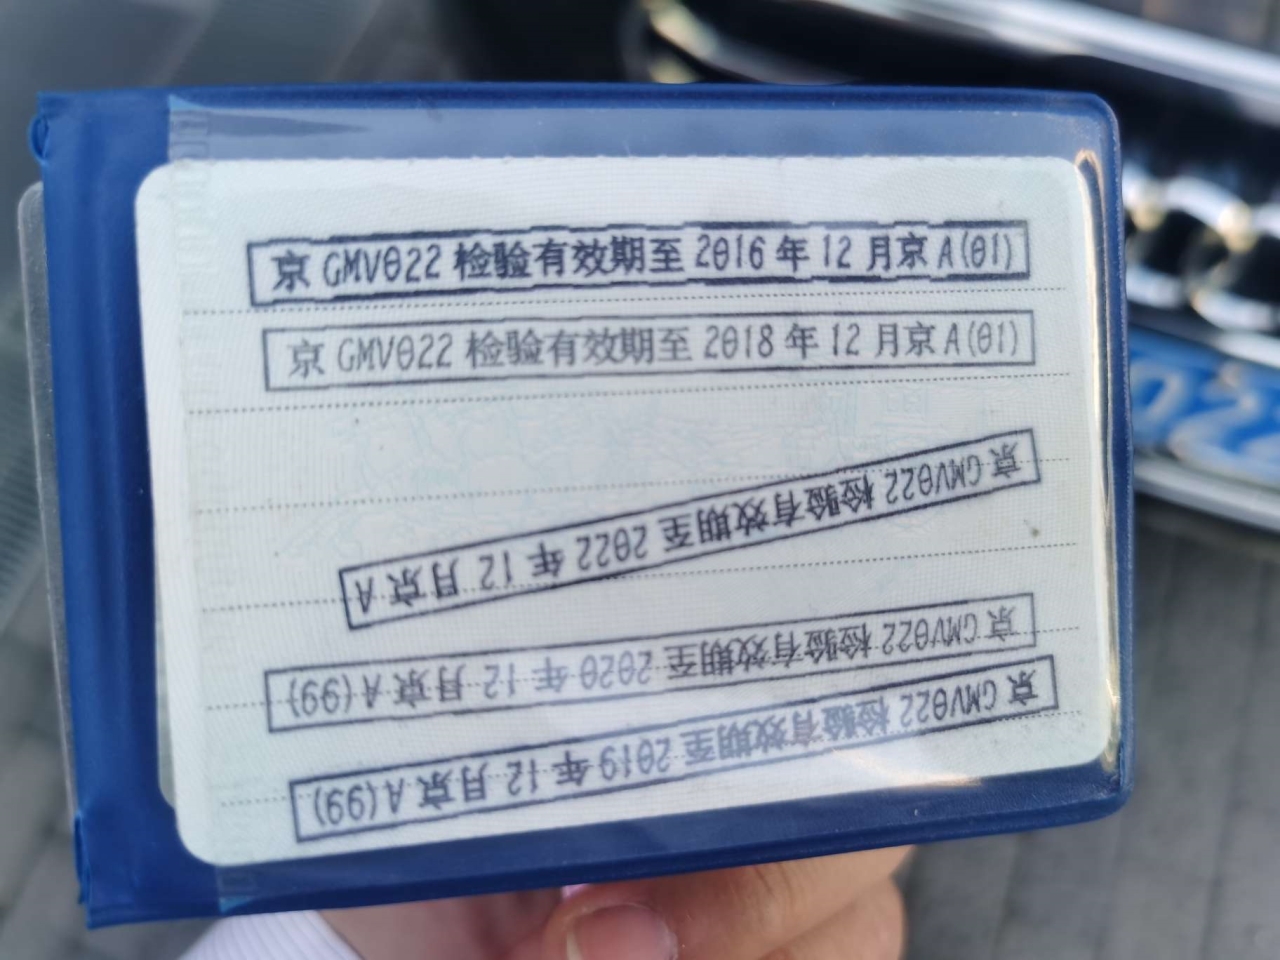 京 GMV022 检验有效期至 2016 年 12 月京 A(01)
京 GMV022 检验有效期至 2018 年 12 月京 A(01)
京 GMV022 检验有效期至 2022 年 12 月京 A
京 GMV022 检验有效期至 2020 年 12 月京 A(99)
京 GMV022 检验有效期至 2019 年 12 月京 A(99)
022